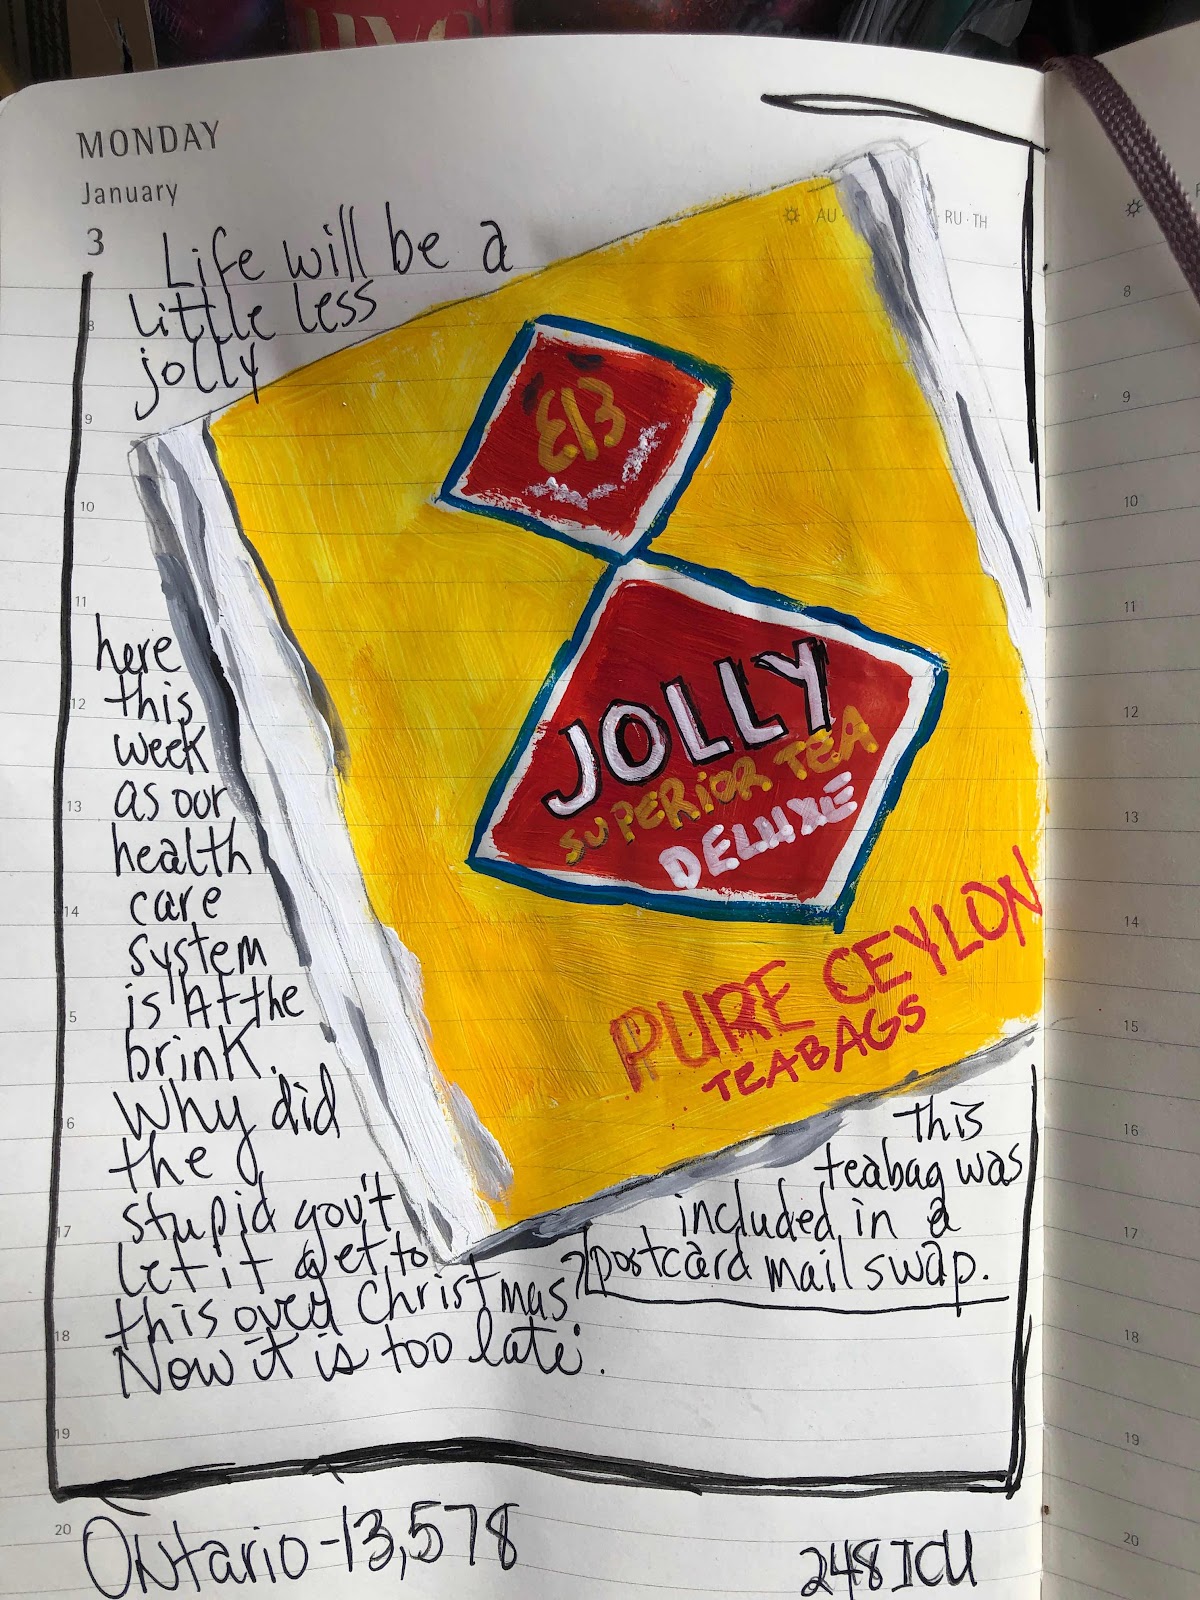 MONDAY
January
3
AU
RU · TH
Life will be a
little less
jolly
here
this
week
as our
health
care
system
is At the
brink.
Why did
the
stupid gov't
let it get to
this over Christmas?
Now it is too late.
E13
JOLLY
SUPERIOR TEA
DELUXE
PURE CEYLON
TEABAGS
this
teabag was
included in a
postcard mail swap.
8
9
10
11
12
13
14
15
16
17
18
19
20
Ontario - 13,578
248 ICU
8
9
10
11
12
13
14
15
16
17
18
19
20